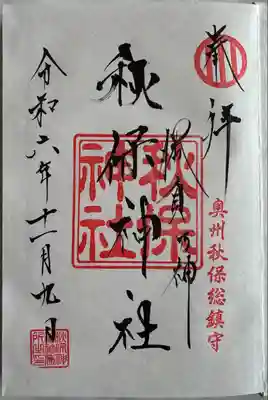 奉拝
奥州秋保総鎮守
勝負の神
秋保神社
秋保神社
令和六年十一月九日